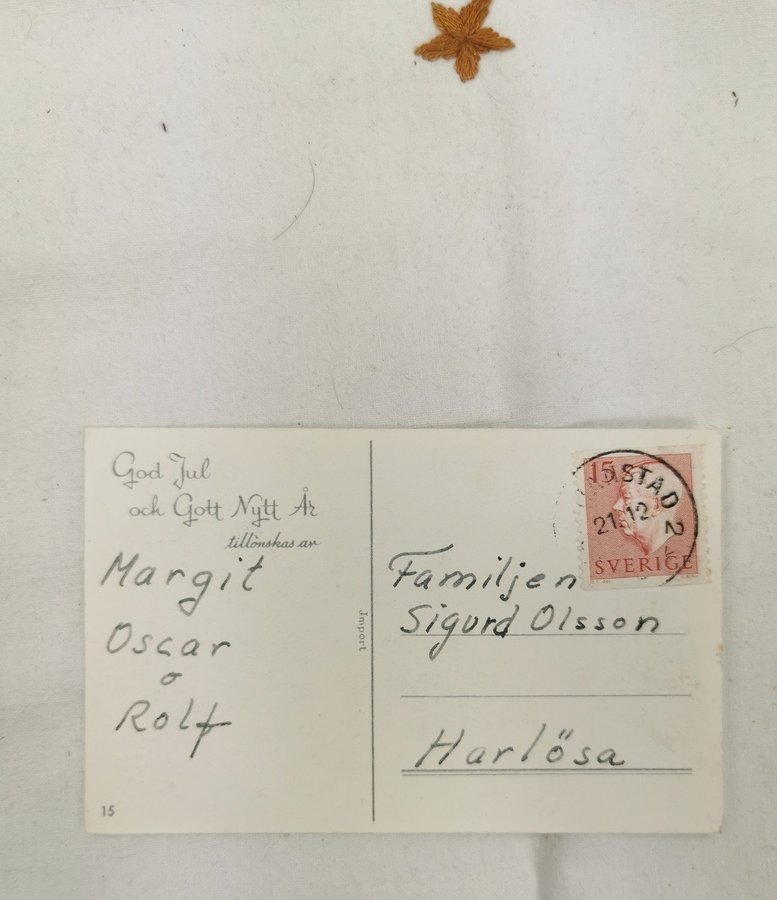 God Jul
och Gott Nytt År
tillönskas av
Margit
Oscar
o
Rolf
15
Import
15
DSTAD 2
21.12
SVERIGE
Familjen
Sigurd Olsson
Harlösa